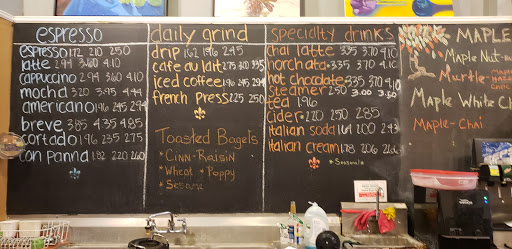 espresso
espresso 172 210 250
latte 294 360 410
cappuccino 294 360 410
mocha 320 395 445
americano 196 245 294
breve 385 435 485
cortado 196 235 275
con panna 182 220 260
daily grind
drip 162 196 245
cafe au lait 275 300 335
iced coffee 196 245 294
french press 225 250
Toasted Bagels
* Cinn-Raisin
* Wheat * Poppy
* Sesame
specialty drinks
chai latte 335 370 410
horchata 335 370 410
hot chocolate 335 370 410
steamer 250 300 350
tea 196
cider 220 250 285
italian soda 164 200 243
italian cream 178 206
* Seasonals
MAPLE
Maple Nut-
Murtle-
Maple White Ch
Maple-Chai